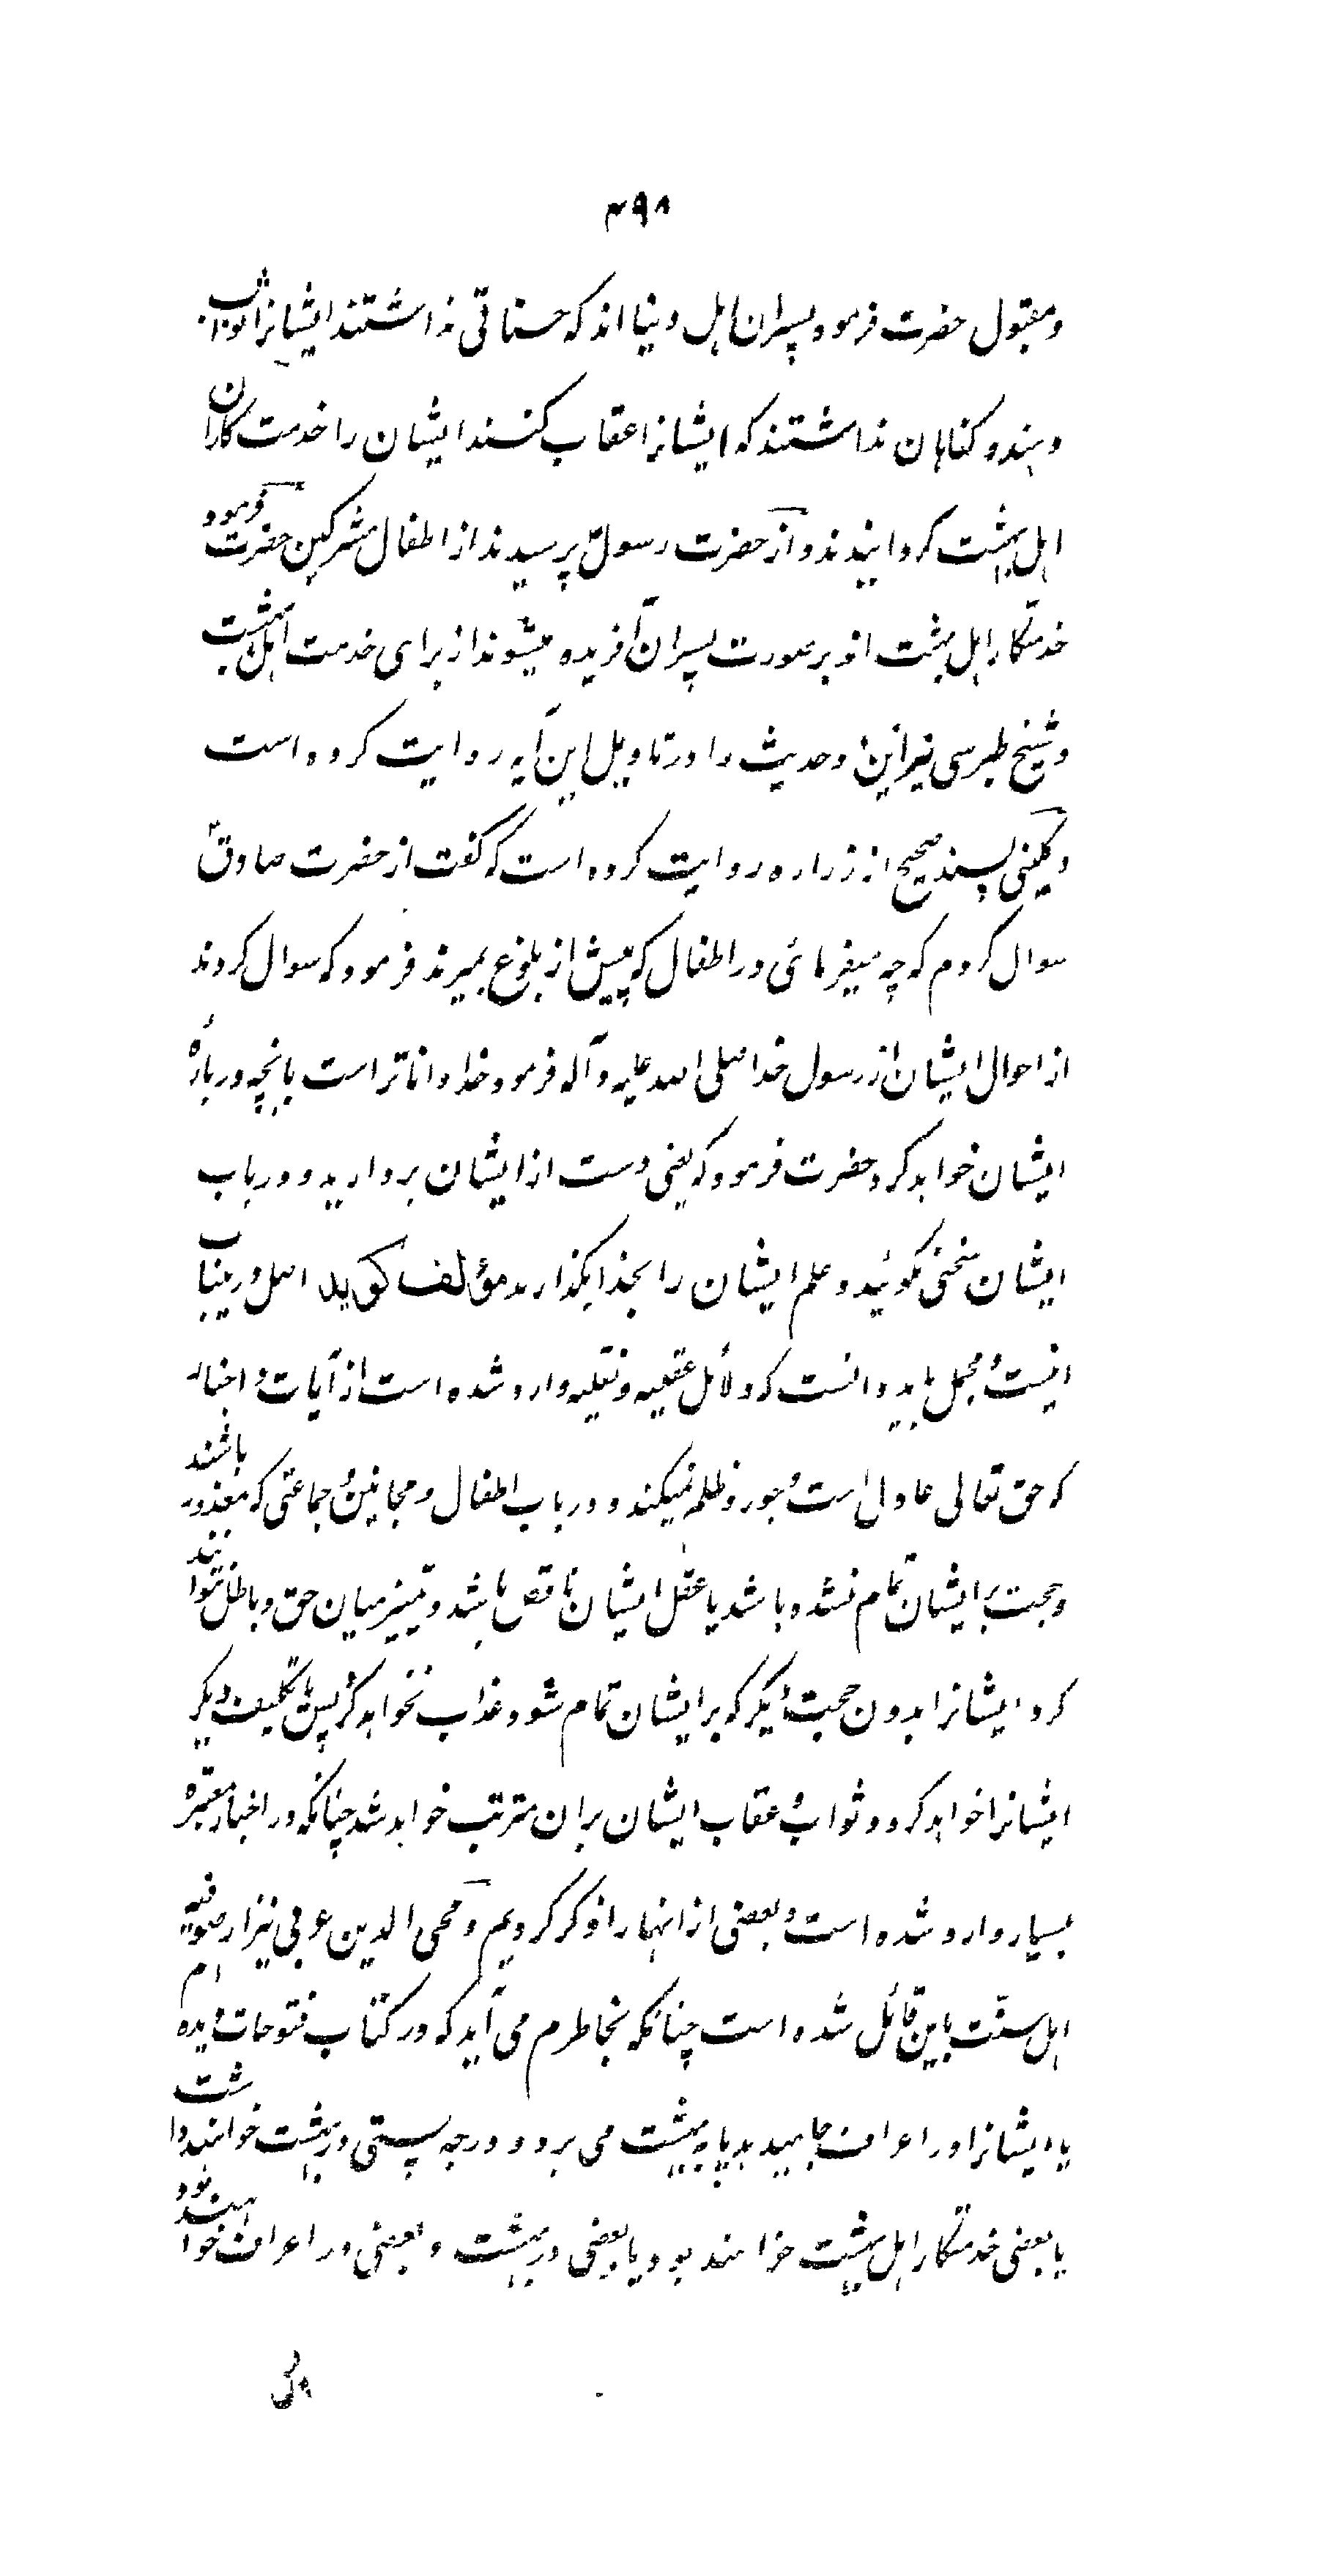 ۴۹۸
و مقبول حضرت فرمود پسران اهل دنیا اند که حسناتی نداشتند ایشانرا ثواب
دهند و گناهان نداشتند که ایشانرا عقاب کنند ایشان را خدمت کاران
اهل بهشت گردانیدند و از حضرت رسول پرسیدند از اطفال مشرکین حضرت فرمود
خدمتکار اهل بهشت اند بر صورت پسران آفریده میشوند از برای خدمت اهل بهشت
و شیخ طبرسی نیز این دو حدیث را در تاویل این آیه روایت کرده است
و کلینی بسند صحیح از زراره روایت کرده است که گفت از حضرت صادق
سوال کردم که چه میفرمائی در اطفال که پیش از بلوغ بمیرند فرمود که سوال کردند
از احوال ایشان از رسول خدا صلی الله علیه و آله فرمود خدا داناتر است بانچه در بارهٔ
ایشان خواهد کرد حضرت فرمود که یعنی دست از ایشان بردارید و در باب
ایشان سخنی نگوئید و علم ایشان را بخدا بگذارید مؤلف گوید اصل در ینباب
اینست و مجمل باید دانست که دلائل عقلیه و نقلیه وارد شده است از آیات و اخبار
که حق تعالی عادل است و جور و ظلم نمیکند و در باب اطفال و مجانین و جماعتی که معذور باشند
و حجت بر ایشان تمام نشده باشد یا عقل ایشان ناقص باشد و تمییز میان حق و باطل نتوانند
کرد ایشانرا بدون حجت دیگر که بر ایشان تمام شود عذاب نخواهد کرد پس یا تکلیف دیگر
ایشانرا خواهد کرد و ثواب و عقاب ایشان بران مترتب خواهد شد چنانکه در اخبار معتبره
بسیار وارد شده است و بعضی از انها را ذکر کردیم و محی الدین عربی نیز از صوفیه
اهل سنت باین قائل شده است چنانکه بخاطرم می آید که در کتاب فتوحات دیده ام
یا ایشانرا در اعراف جا میدهد یا به بهشت می برد و درجه پستی در بهشت خواهند داشت
یا بعضی خدمتکار اهل بهشت خواهند بود یا بعضی در بهشت و بعضی در اعراف خواهند بود